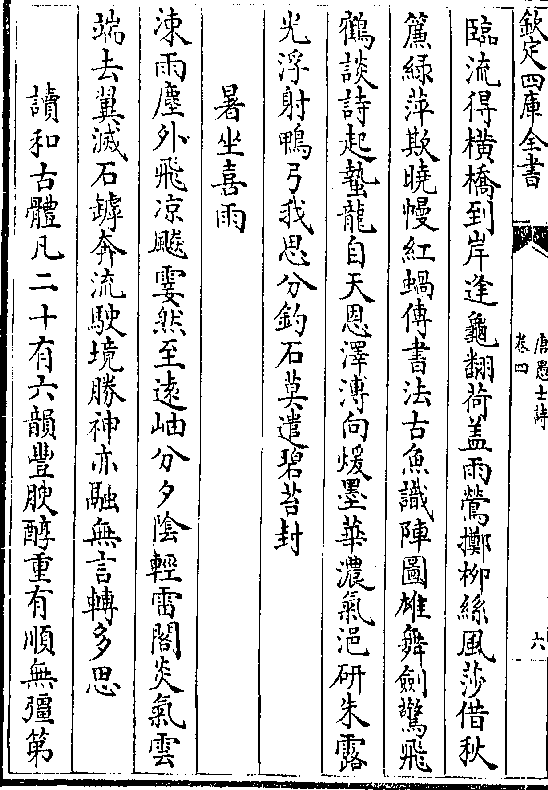 欽定四庫全書
唐愚士詩
卷四
六
臨流得橫橋到岸逢龜翻荷蓋雨鶯擲柳絲風莎借秋
簾綠萍欺曉幔紅蝸傳書法古魚識陣圖雄舞劍驚飛
鶴談詩起蟄龍自天恩澤溥向煖墨華濃氣浥研朱露
光浮射鴨弓我思分釣石莫遣碧苔封
暑坐喜雨
涷雨塵外飛凉飈霎然至遠岫分夕陰輕雷閣炎氣雲
端去翼滅石罅奔流駛境勝神亦融無言轉多思
讀和古體凡二十有六韻豐腴醇重有順無彊第